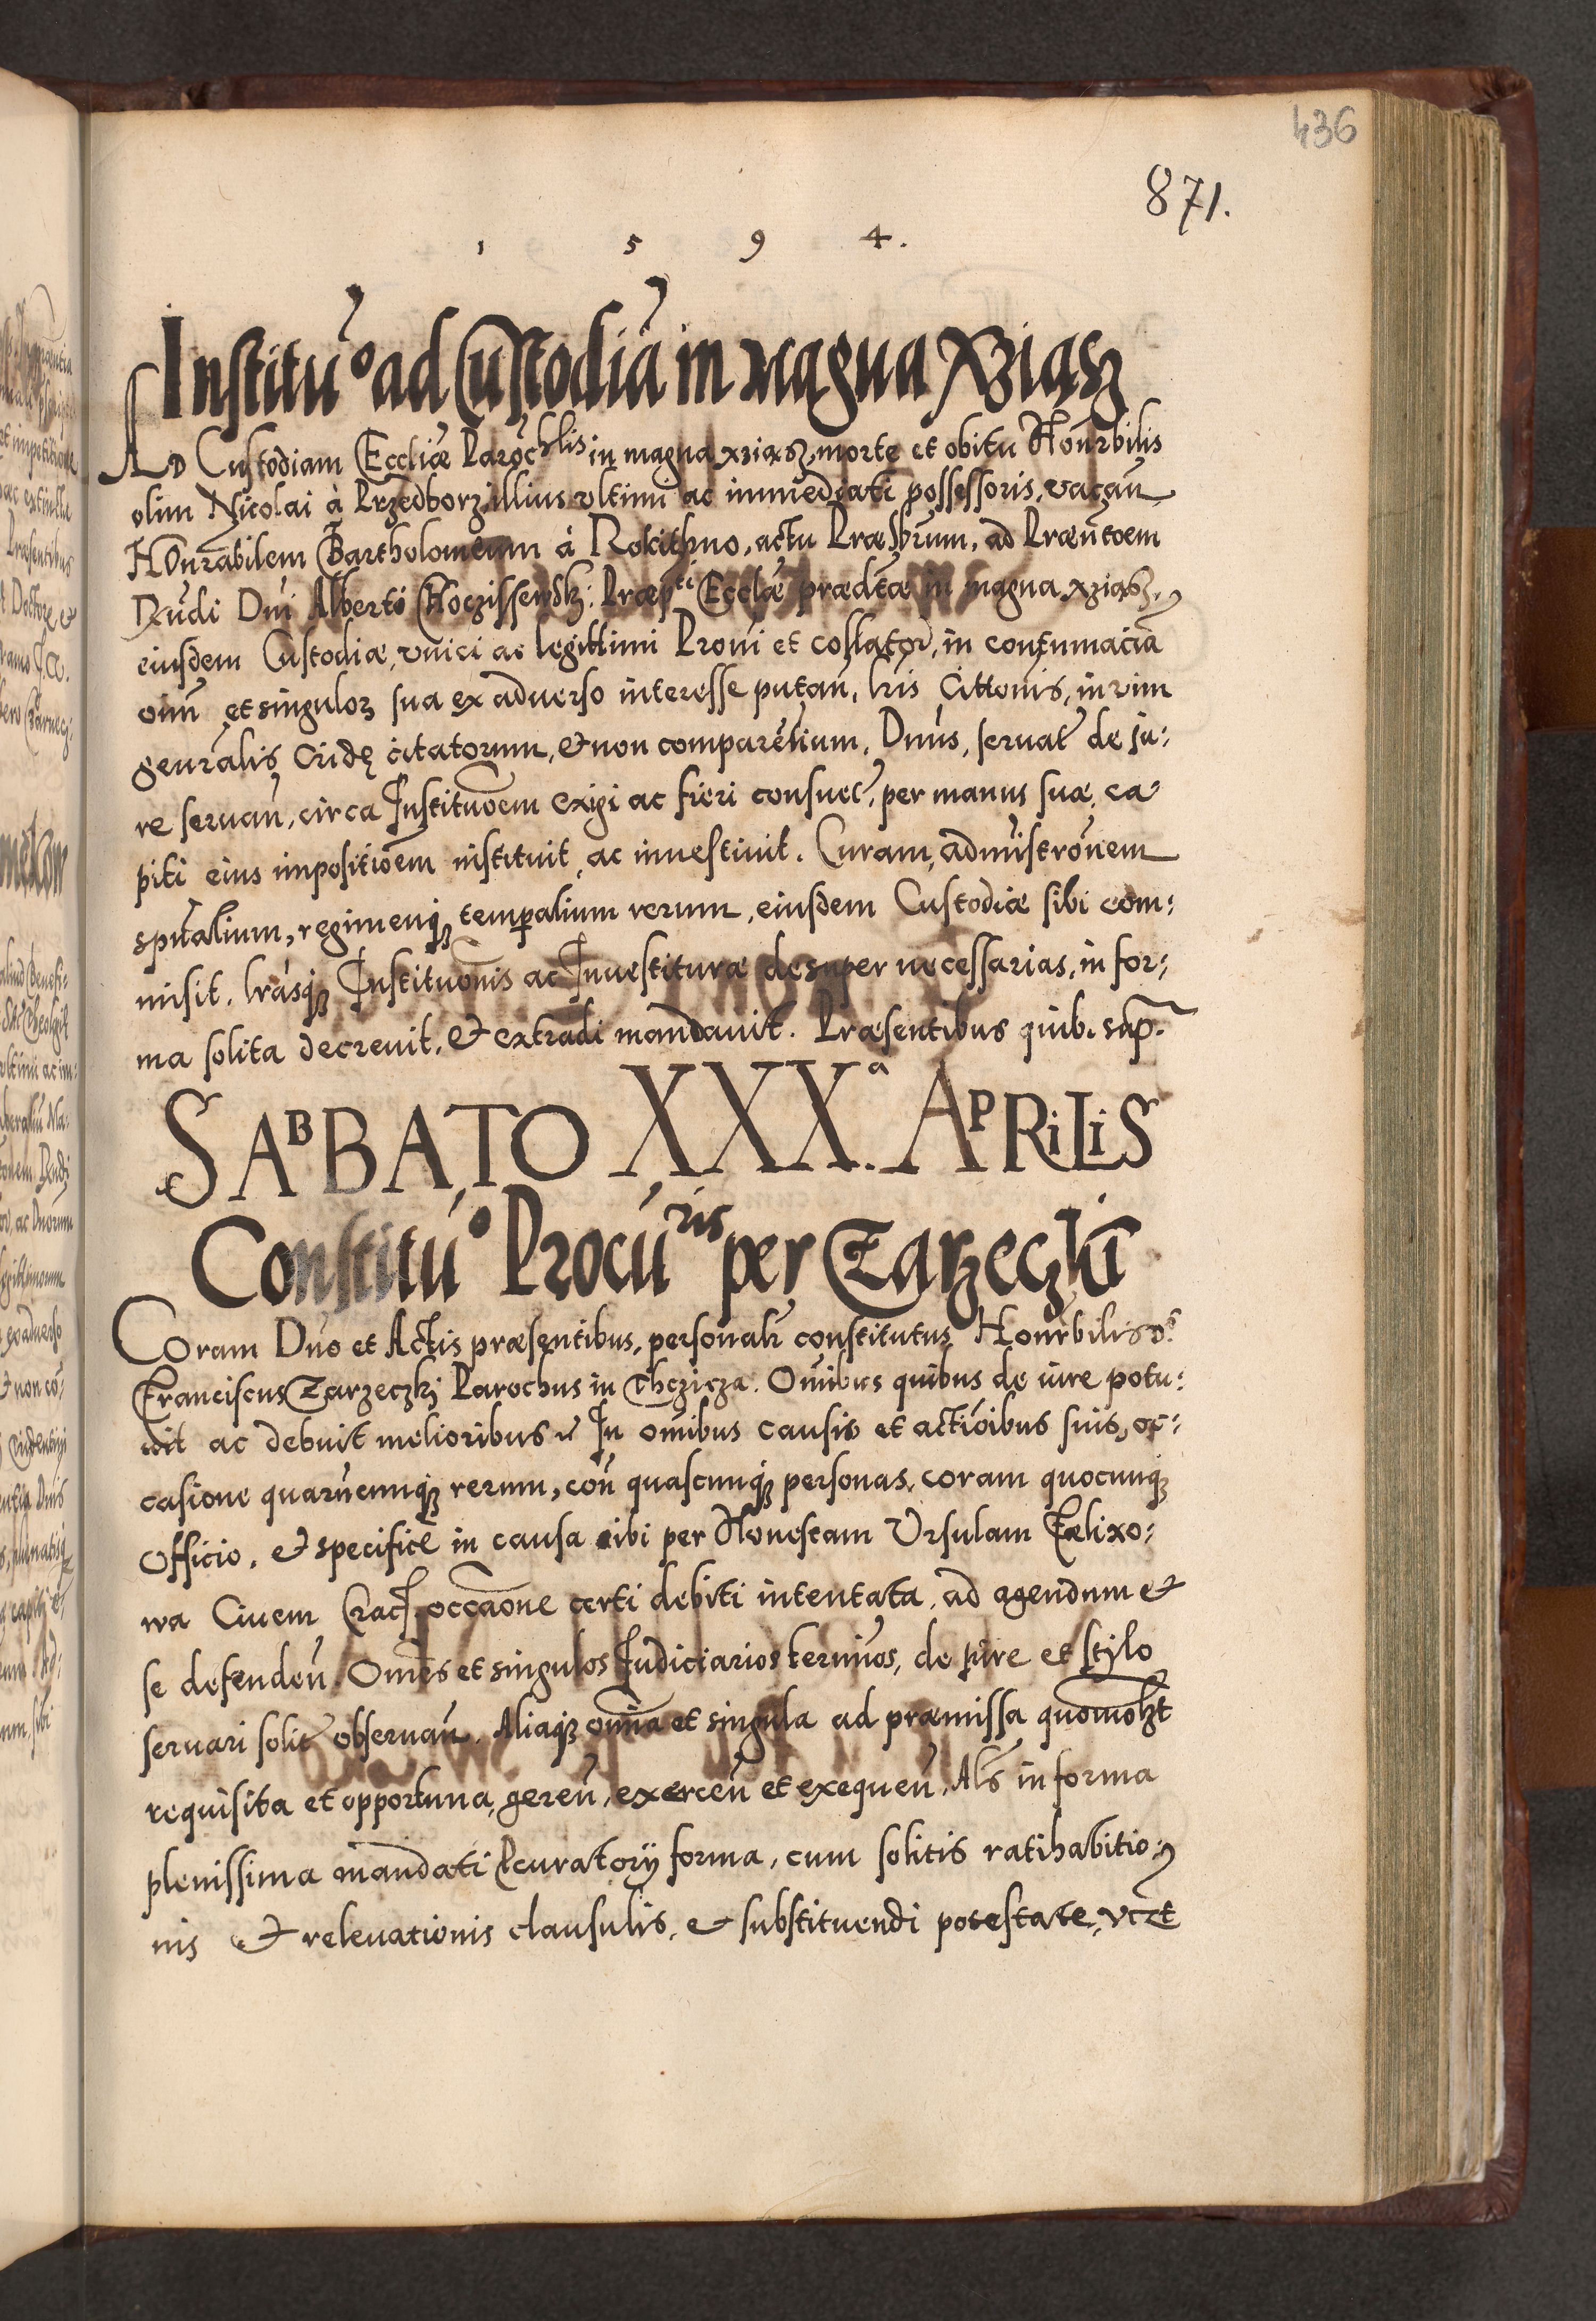 436
871.
1 5 9 4.
Institu͞o ad Custodiā in magna Xziąsz
AD Custodiam Eccliæ Parochlis in magna xziąsz, morte et obitu Honrbilis
olim Nicolai à Przedborz, illius vltimi ac immediati possessoris, vacan̄
Honrabilem Bartholomeum à Rokithno, actu Præsbrum, ad Præn̄tōem
Rn̄di Dn̄i Alberti Koczissewsky Præpti Ecclæ prædc̄tæ in magna xziąsz,
eiusdem Custodiæ, vnici ac legittimi Pron̄i et collator̄, in contumaciā
om̄n̄ et singulor̄ sua ex aduerso interesse putan̄, lr̄is Citton̄is, in vim
gen̄ralis Cridę citatorum, & non comparen̄tium, Dn̄us, seruat̄ de iu:
re seruan̄, circa Instituōem exigi ac fieri consuet̄, per manus suæ, ca:
piti eius impositiōem instituit, ac inuestiuit. Curam, admīstrōnem
spūalium, regimenq₃ temporalium rerum, eiusdem Custodiæ sibi com:
misit, lr̄asq₃ Instituōnis ac Inuestituræ desuper necessarias, in for:
ma solita decreuit, & extradi mandauit. Præsentibus quib. sup.
SABBATO XXX.ª APRILIS
Constitu͞o Procu͞ris per Zarzeczkī
Coram Dn̄o et Actis præsentibus, personalr̄ constitutus Honrbilis d.
Franciscus Zarzeczki Parochus in Thczicza. Om̄ibus quibus de iure potu:
uit ac debuit melioribus & In om̄ibus causis et actiōibus suis, oc:
casione quarūcumq₃ rerum, con̄ quascunq₃ personas, coram quocunq₃
Officio, & specificē in causa sibi per Honestam Vrsulam Fælixo:
wa Ciuem Crac̄. occaōne certi debiti intentata, ad agendum &
se defenden̄. Om̄es et singulos Iudiciarios termīos, de iure et stylo
seruari solit̄ obseruan̄. Aliaq₃ om̄ia et singula ad præmissa quōmolꝫt
requisita et opportuna, geren̄, exercen̄ et exequen̄. Als̄ in forma
plenissima mandati Pcuratorij forma, cum solitis ratihabitio:
nis & releuationis clausulis, & substituendi potestate, vcꝫt